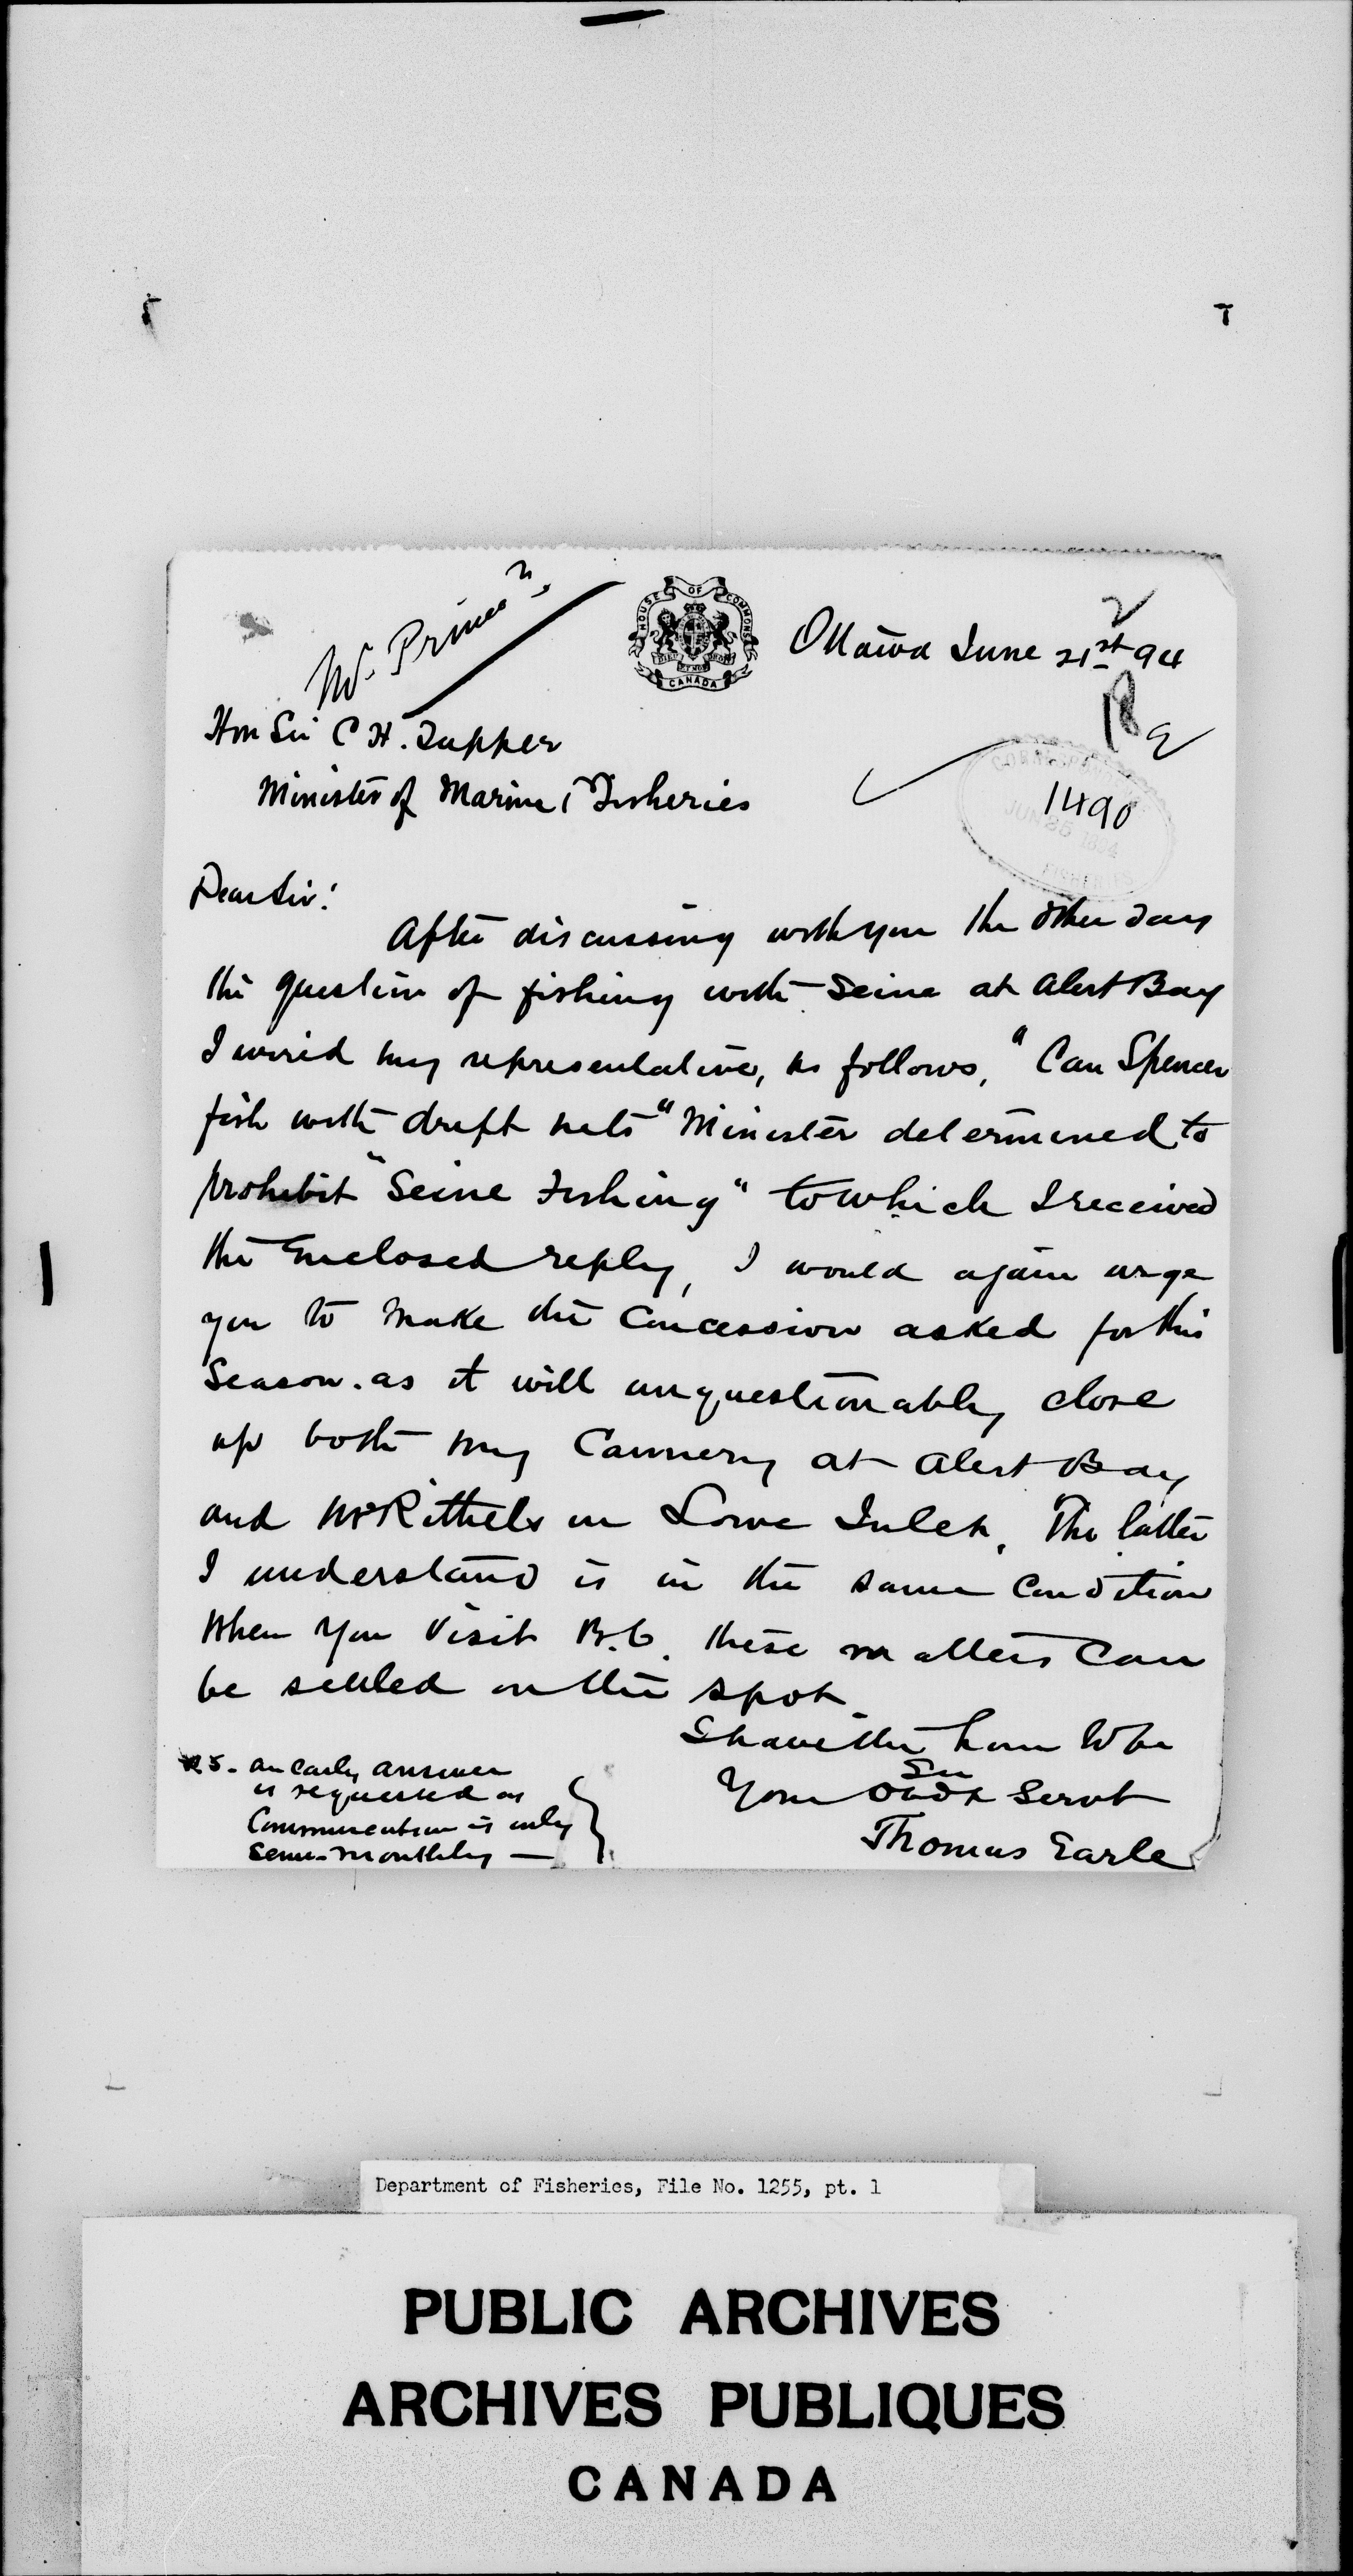 Mr. Prince
HOUSE OF COMMONS
CANADA
Ottawa June 21st 94
Hon Sir C H. Tupper
Minister of Marine & Fisheries
CORRESPONDENCE
JUN 25 1894
FISHERIES
1490
Dear Sir!
After discussing with you the other day
the question of fishing with Seine at Alert Bay
I wired my representative, as follows, "Can Spencer
fish with drift nets "Minister determined to
prohibit "Seine Fishing" to which I received
the Enclosed reply, I would again urge
you to make the Concession asked for this
Season. as it will unquestionably close
up both my Cannery at Alert Bay
and Mr Rithets in Lowe Inlet. The latter
I understand is in the same Condition
When you Visit B.C. these matters Can
be settled on the spot
I have the honor to be
Sir
Your Obdt Servt
Thomas Earle
P.S. an early answer
is requested as
Communication is only
Semi-monthly —
Department of Fisheries, File No. 1255, pt. 1
PUBLIC ARCHIVES
ARCHIVES PUBLIQUES
CANADA